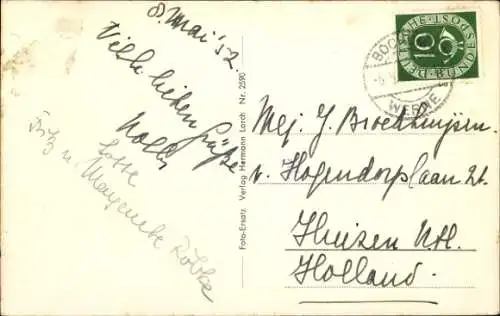 8. Mai '52.
Viele lieben Grüße
Lotte
Fritz u. Margarete
Foto-Ersatz. Verlag Hermann Lorch Nr. 2590
DEUTSCHE BUNDESPOST
10
BOCHUM
WERNE
Mej. J. Broekhuijsen.
v. Hogendorplaan 21.
Huizen N.H.
Holland.